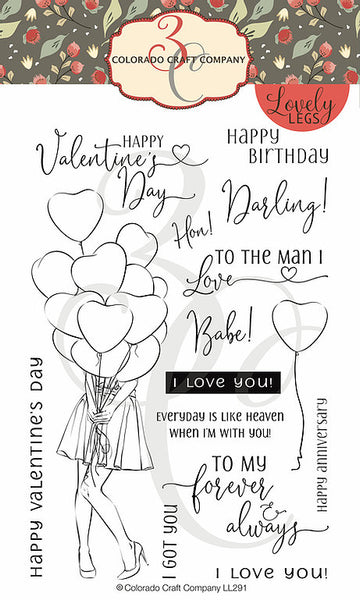 3C
COLORADO CRAFT COMPANY
Lovely
LEGS
HAPPY
Valentine's
Day
HAPPY
BIRTHDAY
Hon!
Darling!
TO THE MAN I
Love
Babe!
I LOVE YOU!
EVERYDAY IS LIKE HEAVEN
WHEN I'M WITH YOU!
HAPPY VALENTINE'S DAY
HAPPY ANNIVERSARY
I GOT YOU
TO MY
forever
&
always
I LOVE YOU!
© Colorado Craft Company LL291